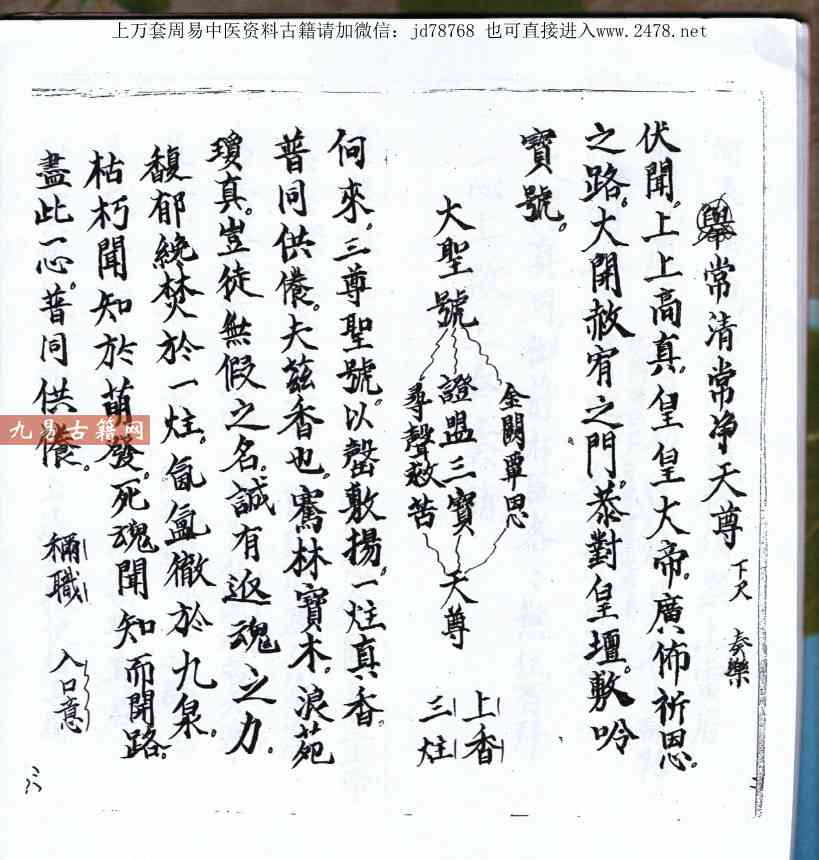 上万套周易中医资料古籍请加微信：jd78768 也可直接进入www.2478.net
舉常清常净天尊 下尺 奏樂
伏聞。上上高真。皇皇大帝。廣佈祈恩。
之路。大開赦宥之門。恭對皇壇。敷吟
寶號。
大聖號
金闕覃恩
證盟三寶
尋聲救苦
天尊
上香
三炷
何來。三尊聖號。以罄敷揚。一炷真香。
普同供養。夫兹香也。騫林寶木。浪苑
瓊真。豈徒無假之名。誠有返魂之力。
馥郁繞焚於一炷。氤氳徹於九泉。
枯朽聞知於萌發。死魂聞知而開路。
盡此一心。普同供養。 稱職 入口意
九易古籍网